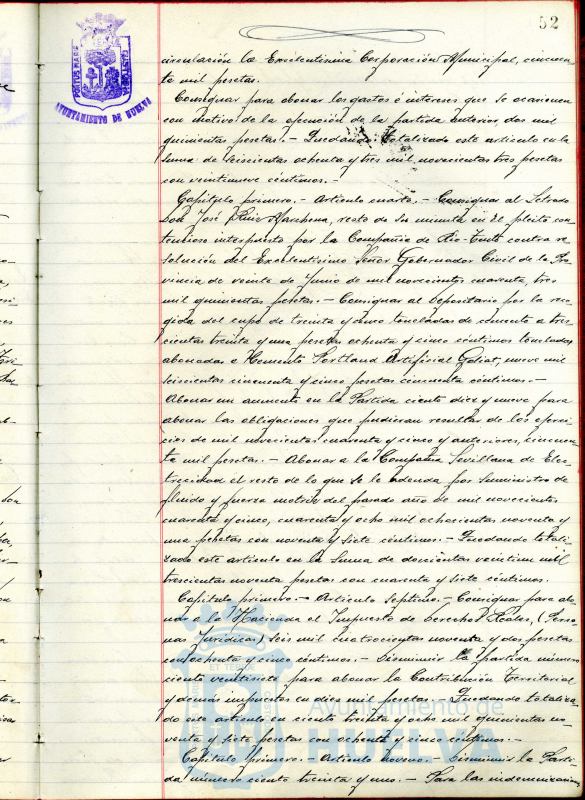 52
AYUNTAMIENTO DE HUELVA
circulación la Excelentisima Corporación Municipal, cincuen-
ta mil pesetas.
Consignar para abonar los gastos é intereses que se ocasionen
con motivo de la ejecución de la partida anterior, dos mil
quinientas pesetas. - Quedando totalizado este artículo en la
suma de seiscientas ochenta y tres mil novecientas tres pesetas
con veintinueve céntimos. -
Capítulo primero. - Artículo cuarto. - Consignar al Letrado
Don José Ruiz Marchena, resto de su minuta en el pleito con-
tencioso interpuesto por la Compañia de Rio-Tinto contra re-
solución del Excelentísimo Señor Gobernador Civil de la Pro-
vincia de veinte de Junio de mil novecientos cuarenta, tres
mil quinientas pesetas. - Consignar al Depositario por la reco-
gida del cupo de treinta y cinco toneladas de cemento a tres-
cientas treinta y una pesetas ochenta y cinco céntimos tonelada,
abonadas a Cemento Portland Artificial Goliat, nueve mil
seiscientas cincuenta y cinco pesetas cincuenta céntimos. -
Abonar un aumento en la Partida ciento diez y nueve para
abonar las obligaciones que pudieran resultar de los ejerci-
cios de mil novecientos cuarenta y cinco y anteriores, cincuen-
ta mil pesetas. - Abonar a la Compañia Sevillana de Elec-
tricidad el resto de lo que se le adeuda por suministro de
fluido y fuerza motriz del pasado año de mil novecientos
cuarenta y cinco, cuarenta y ocho mil ochocientas noventa y
una pesetas con noventa y siete céntimos. - Quedando totali-
zado este artículo en la suma de doscientas veintiun mil
trescientas noventa pesetas con cuarenta y siete céntimos.
Capítulo primero. - Artículo septimo. - Consignar para abo-
nar a la Hacienda el Impuesto de Derechos Reales, (Perso-
nas Jurídicas) seis mil cuatrocientas noventa y dos pesetas
con ochenta y cinco céntimos. - Disminuir la partida número
ciento veintisiete para abonar la Contribución Territorial
y demas impuestos en diez mil pesetas. - Quedando totaliza-
do este artículo en ciento treinta y ocho mil quinientas no-
venta y siete pesetas ochenta y cinco céntimos. -
Capítulo primero. - Artículo noveno. - Disminuir la Parti-
da número ciento treinta y uno. - Para las indemnizaciones
Ayuntamiento de
HUELVA